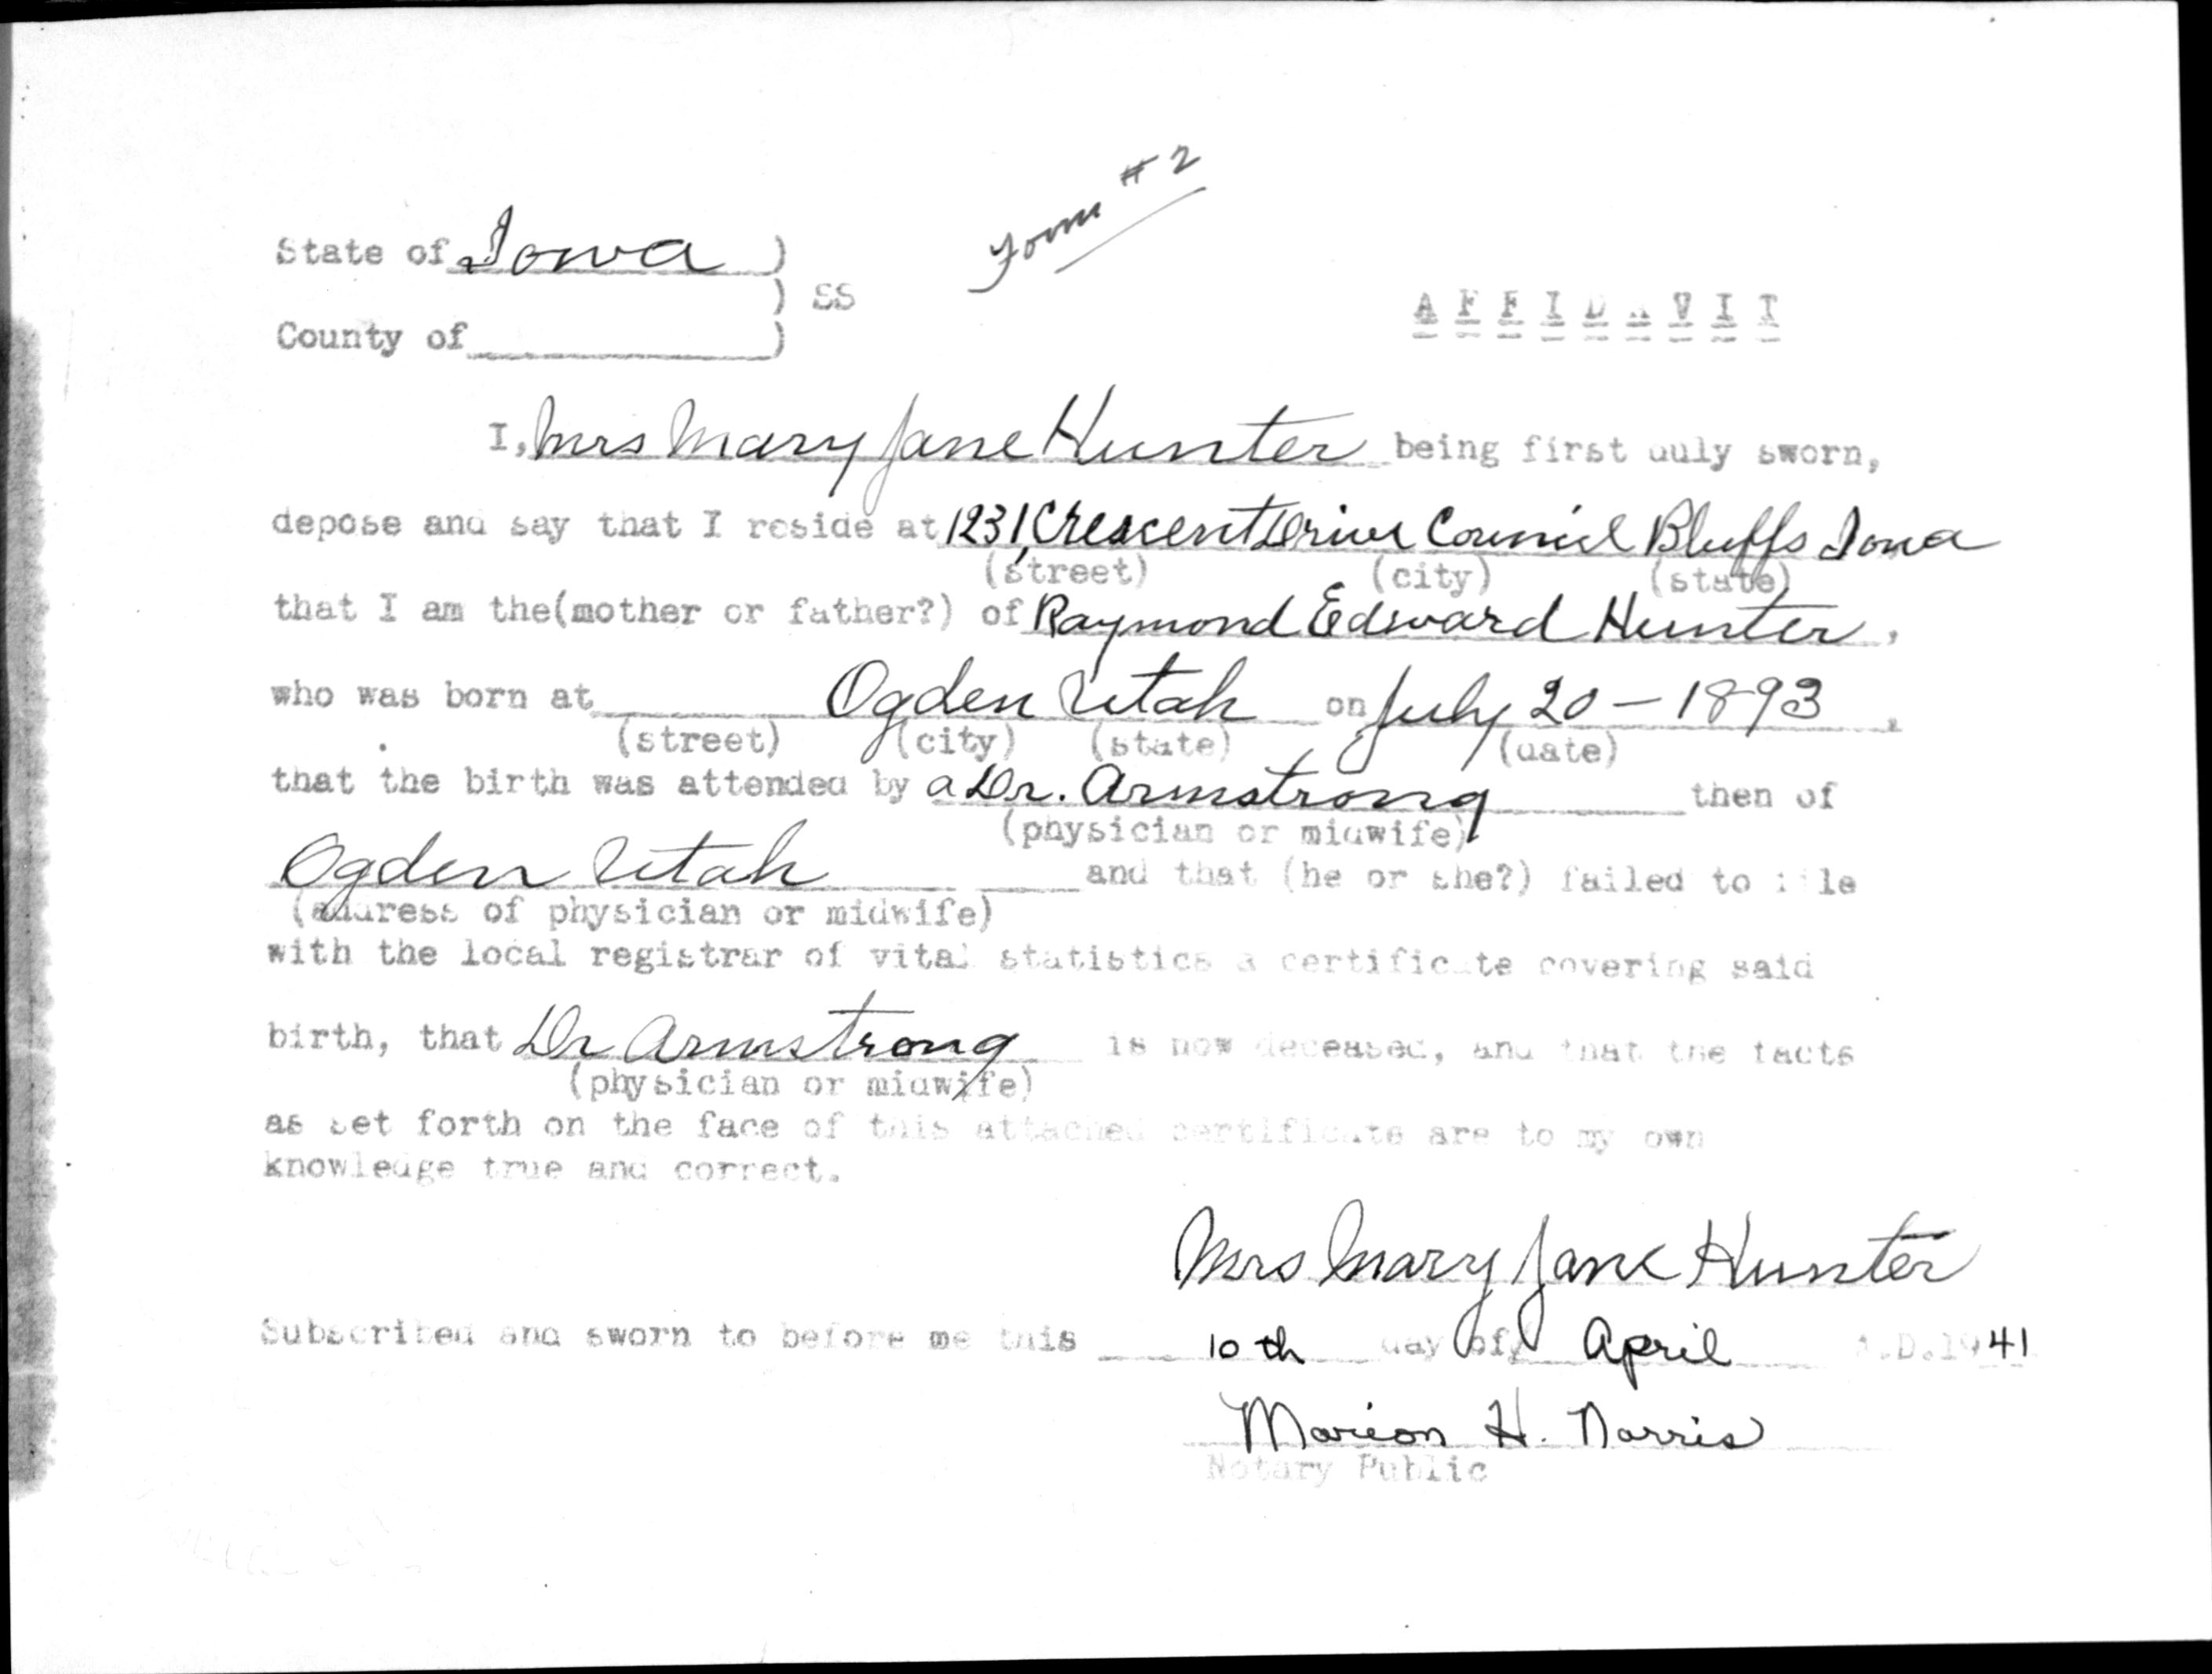 Form #2
State of Iowa )
) SS
County of )
AFFIDAVIT
I, Mrs Mary Jane Hunter being first duly sworn,
depose and say that I reside at 1231 Crescent Drive Council Bluffs Iowa
(street) (city) (state)
that I am the(mother or father?) of Raymond Edward Hunter,
who was born at Ogden Utah on July 20 - 1893,
(street) (city) (state) (date)
that the birth was attended by a Dr. Armstrong then of
(physician or midwife)
Ogden Utah and that (he or she?) failed to file
(address of physician or midwife)
with the local registrar of vital statistics a certificate covering said
birth, that Dr Armstrong is now deceased, and that the facts
(physician or midwife)
as set forth on the face of this attached certificate are to my own
knowledge true and correct.
Mrs Mary Jane Hunter
Subscribed and sworn to before me this 10th day of April A.D.1941
Marion H. Norris
Notary Public